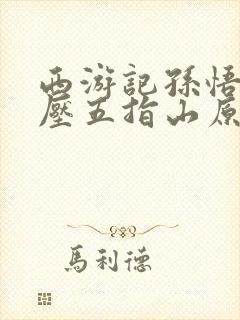 西游記孫悟
壓五指山原
馬利德